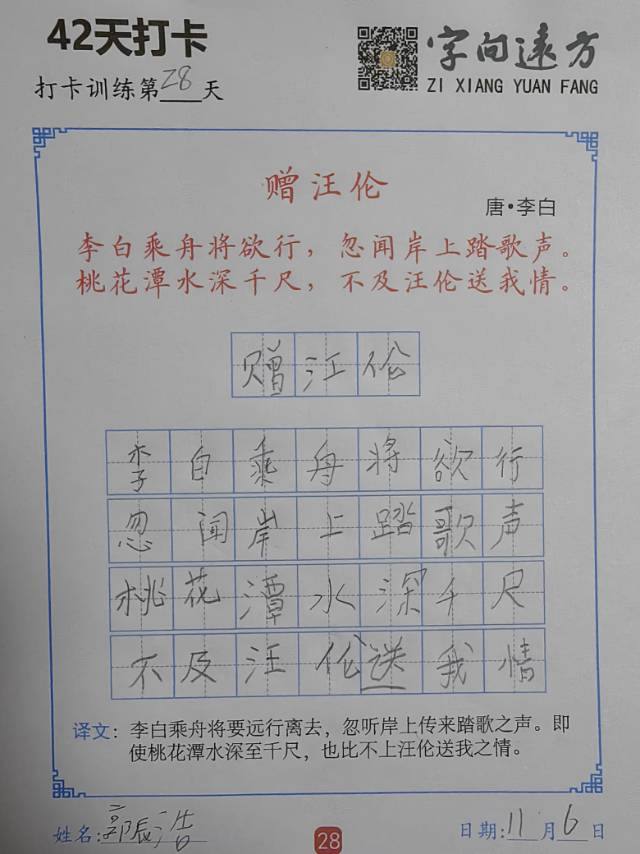 42天打卡
字向远方
打卡训练第28天
ZI XIANG YUAN FANG
赠汪伦
唐·李白
李白乘舟将欲行，忽闻岸上踏歌声。
桃花潭水深千尺，不及汪伦送我情。
赠汪伦
李白乘舟将欲行
忽闻岸上踏歌声
桃花潭水深千尺
不及汪伦送我情
译文：李白乘舟将要远行离去，忽听岸上传来踏歌之声。即
使桃花潭水深至千尺，也比不上汪伦送我之情。
姓名:郭振浩
28
日期:11月6日